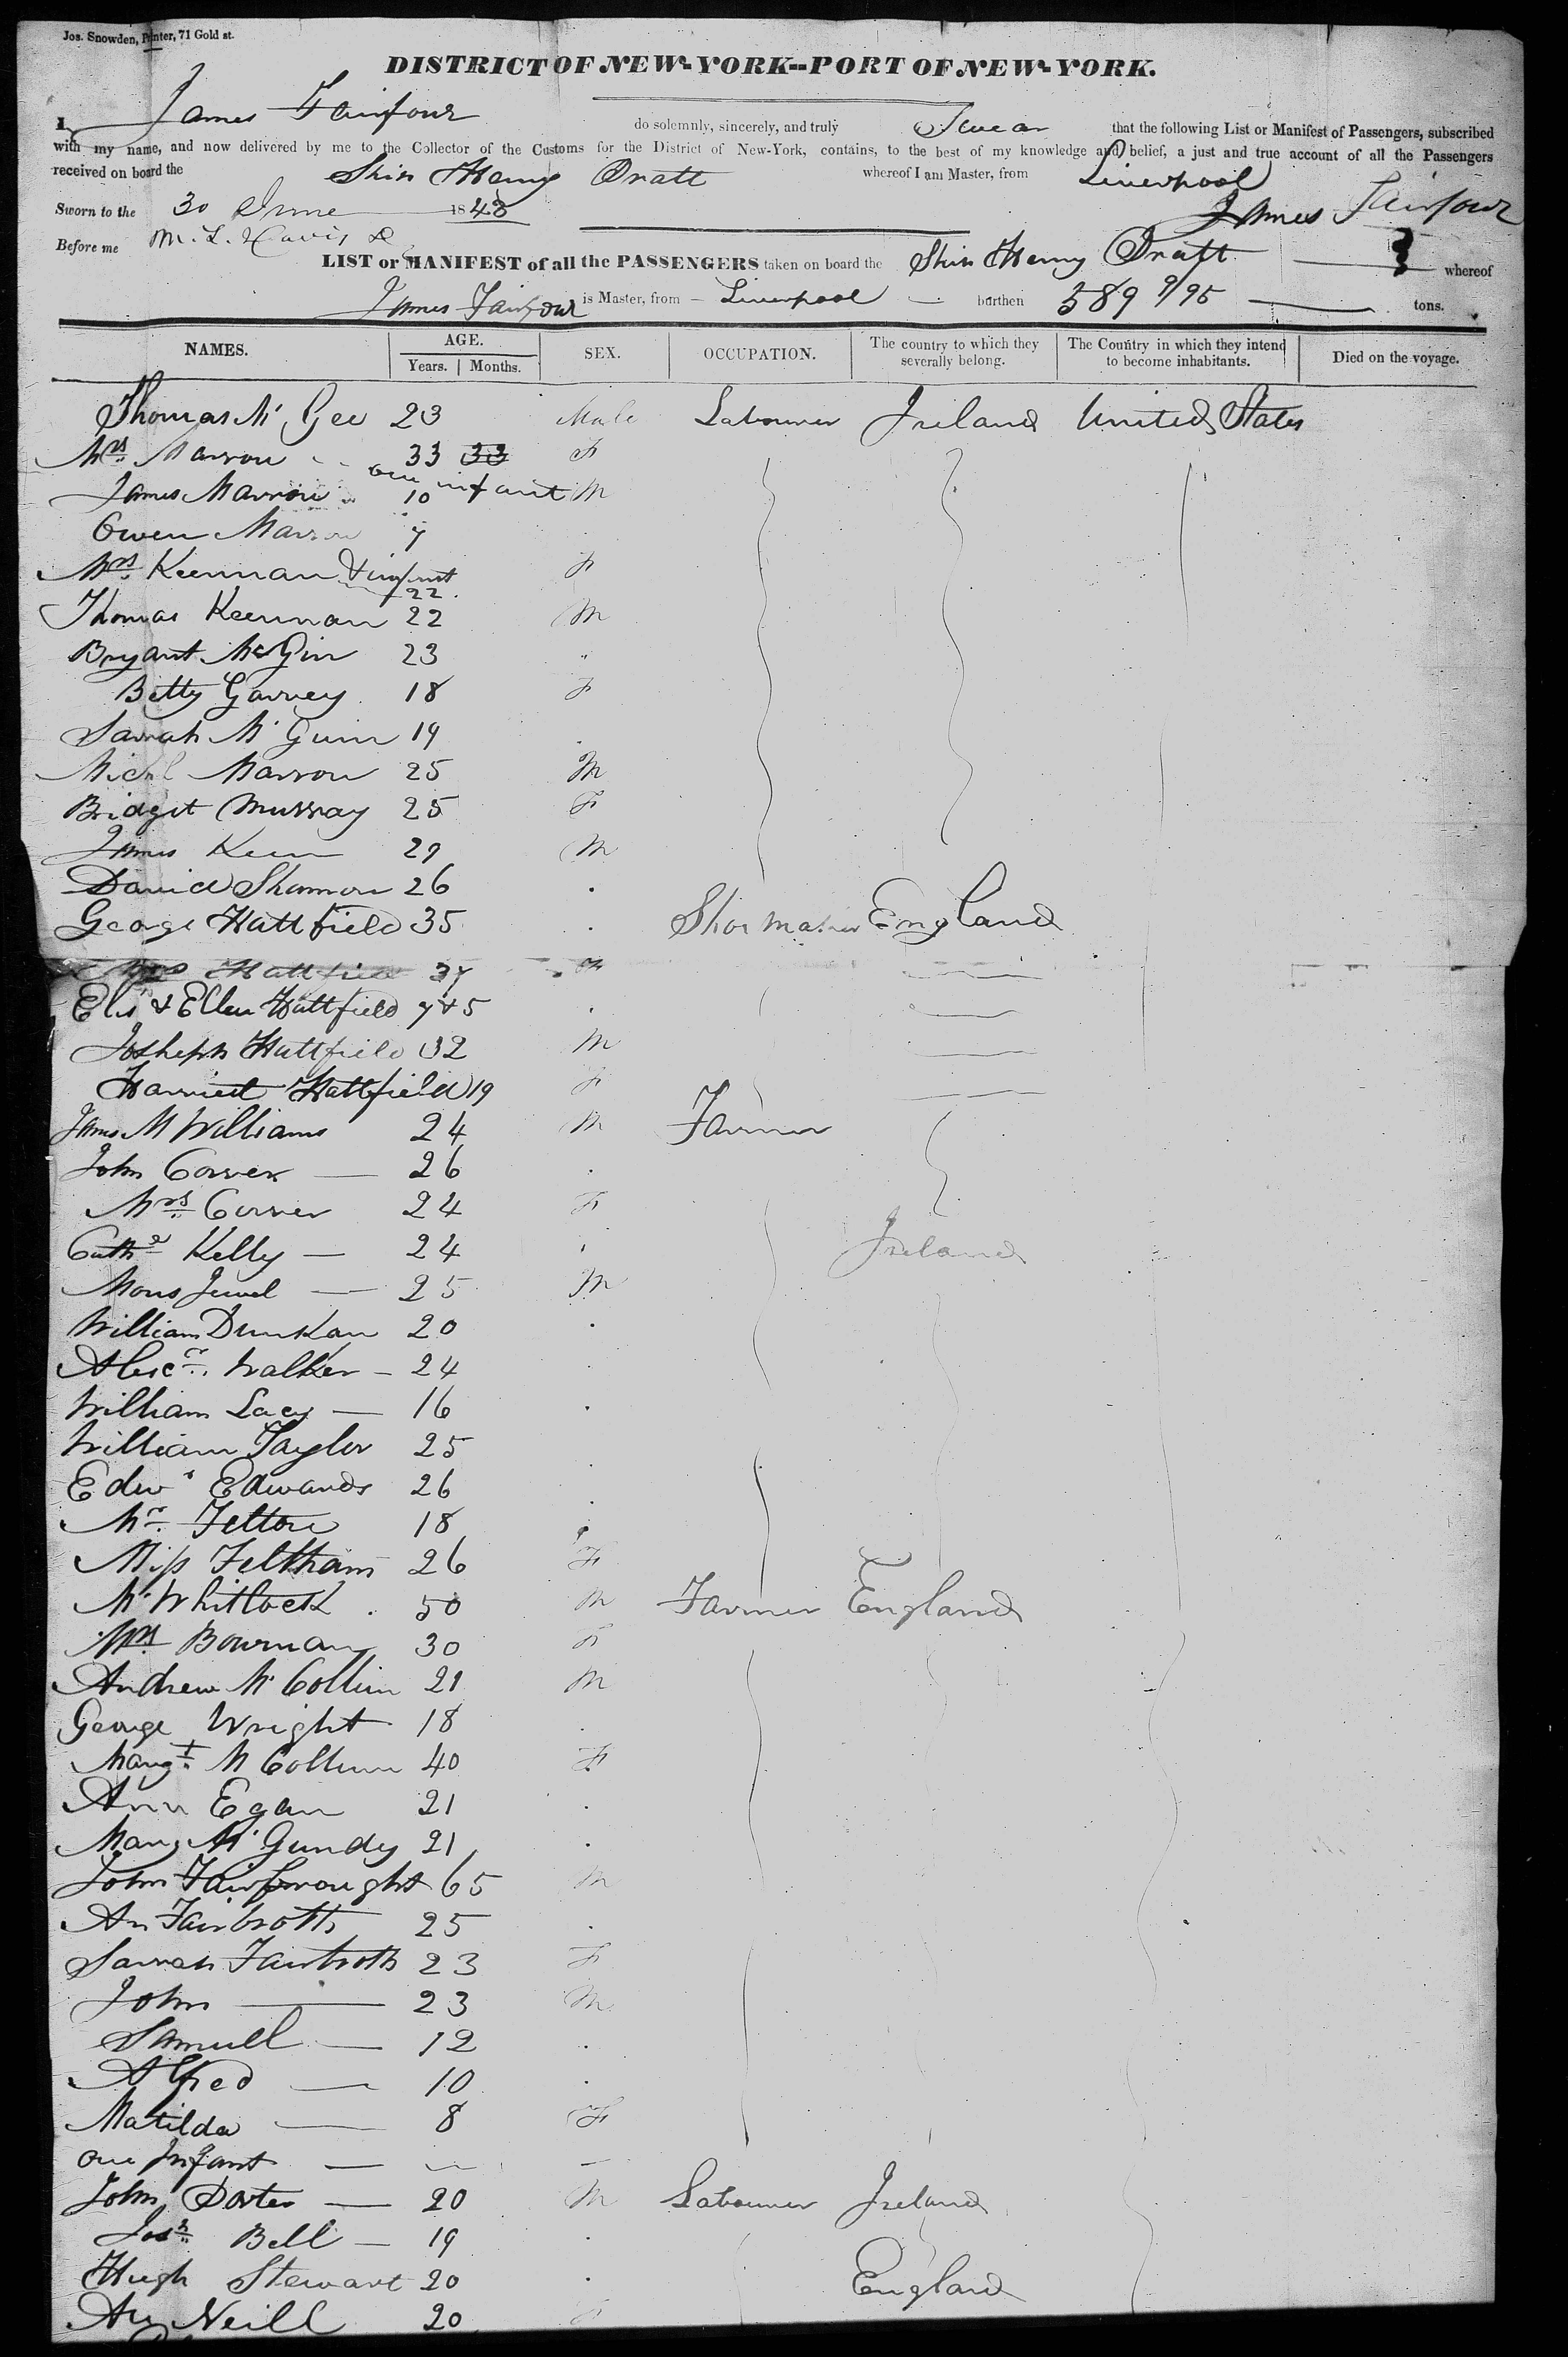 Jos. Snowden, Printer, 71 Gold st.
DISTRICT OF NEW-YORK--PORT OF NEW-YORK.
I, James Fairfowl do solemnly, sincerely, and truly Swear that the following List or Manifest of Passengers, subscribed
with my name, and now delivered by me to the Collector of the Customs for the District of New-York, contains, to the best of my knowledge and belief, a just and true account of all the Passengers
received on board the Ship Henry Pratt whereof I am Master, from Liverpool
Sworn to the 30 June 1848 James Fairfowl
Before me M. L. Davis
LIST or MANIFEST of all the PASSENGERS taken on board the Ship Henry Pratt whereof
James Fairfowl is Master, from Liverpool burthen 589 9/95 tons.
NAMES. AGE. Years. Months. SEX. OCCUPATION. The country to which they severally belong. The Country in which they intend to become inhabitants. Died on the voyage.
Thomas Mc Gee 23 Male Labourer Ireland United States
Mrs. Marron 33 33 F
one infant
James Marron 10 M
Owen Marron 7
Mrs. Keennan & infant 22 F
Thomas Keennan 22 M
Bryant McGin 23 "
Betty Garvey 18 F
Sarrah Mc Guin 19
Michl Marron 25 M
Bridget Murray 25 F
James 29 M
David Shannon 26
George Hattfield 35 Shoe Maker England
Mrs Hattfield 37 F
Elis & Ellen Hattfield 7 & 5
Josheph Hattfield 32 M
Harriett Hattfield 19 F
James Mc Williams 24 M Farmer
John Corver 26
Mrs Corver 24 F
Cathe Kelly 24 Ireland
Mons Jewel 25 M
William Dunkan 20
Alexr. Walker 24
William Lacy 16
William Taylor 25
Edwd Edwards 26
Mr. Felton 18
Miss Feltham 26 F
Mr Whitlock 50 M Farmer England
Mrs Bowman 30 F
Andrew Mc Collum 21 M
George Wright 18
Margt. Mc Collum 40 F
Ann Egan 21
Mary Mc Gundy 21
John 65 M
An Fairbroth 25
Sarrah Fairbroth 23 F
John 23 M
Samuell 12
Alfred 10
Matilda 8 F
one Infant
John Porter 20 M Labourer Ireland
Josh. Bell 19
Hugh Stewart 20 England
An Neill 20 F